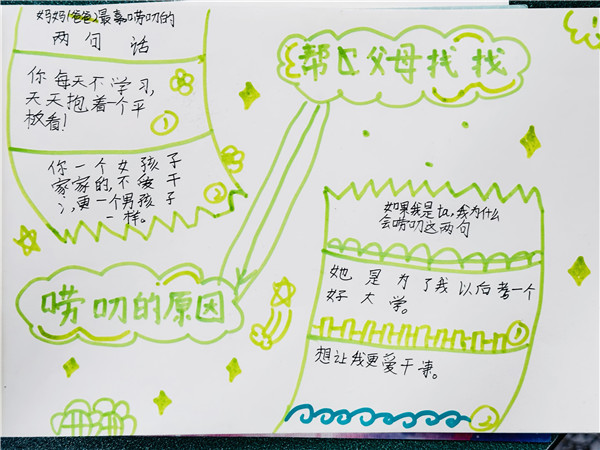 妈妈(爸爸)最喜唠叨的
两句话
你每天不学习,
天天抱着一个平
板看!
①
你一个女孩子
家家的,不爱干
净,更一个男孩子
一样。
②
帮助父母找找
唠叨的原因
如果我是ta,我为什么
会唠叨这两句
她是为了我以后考一个
好大学。
①
想让我更爱干净。
②